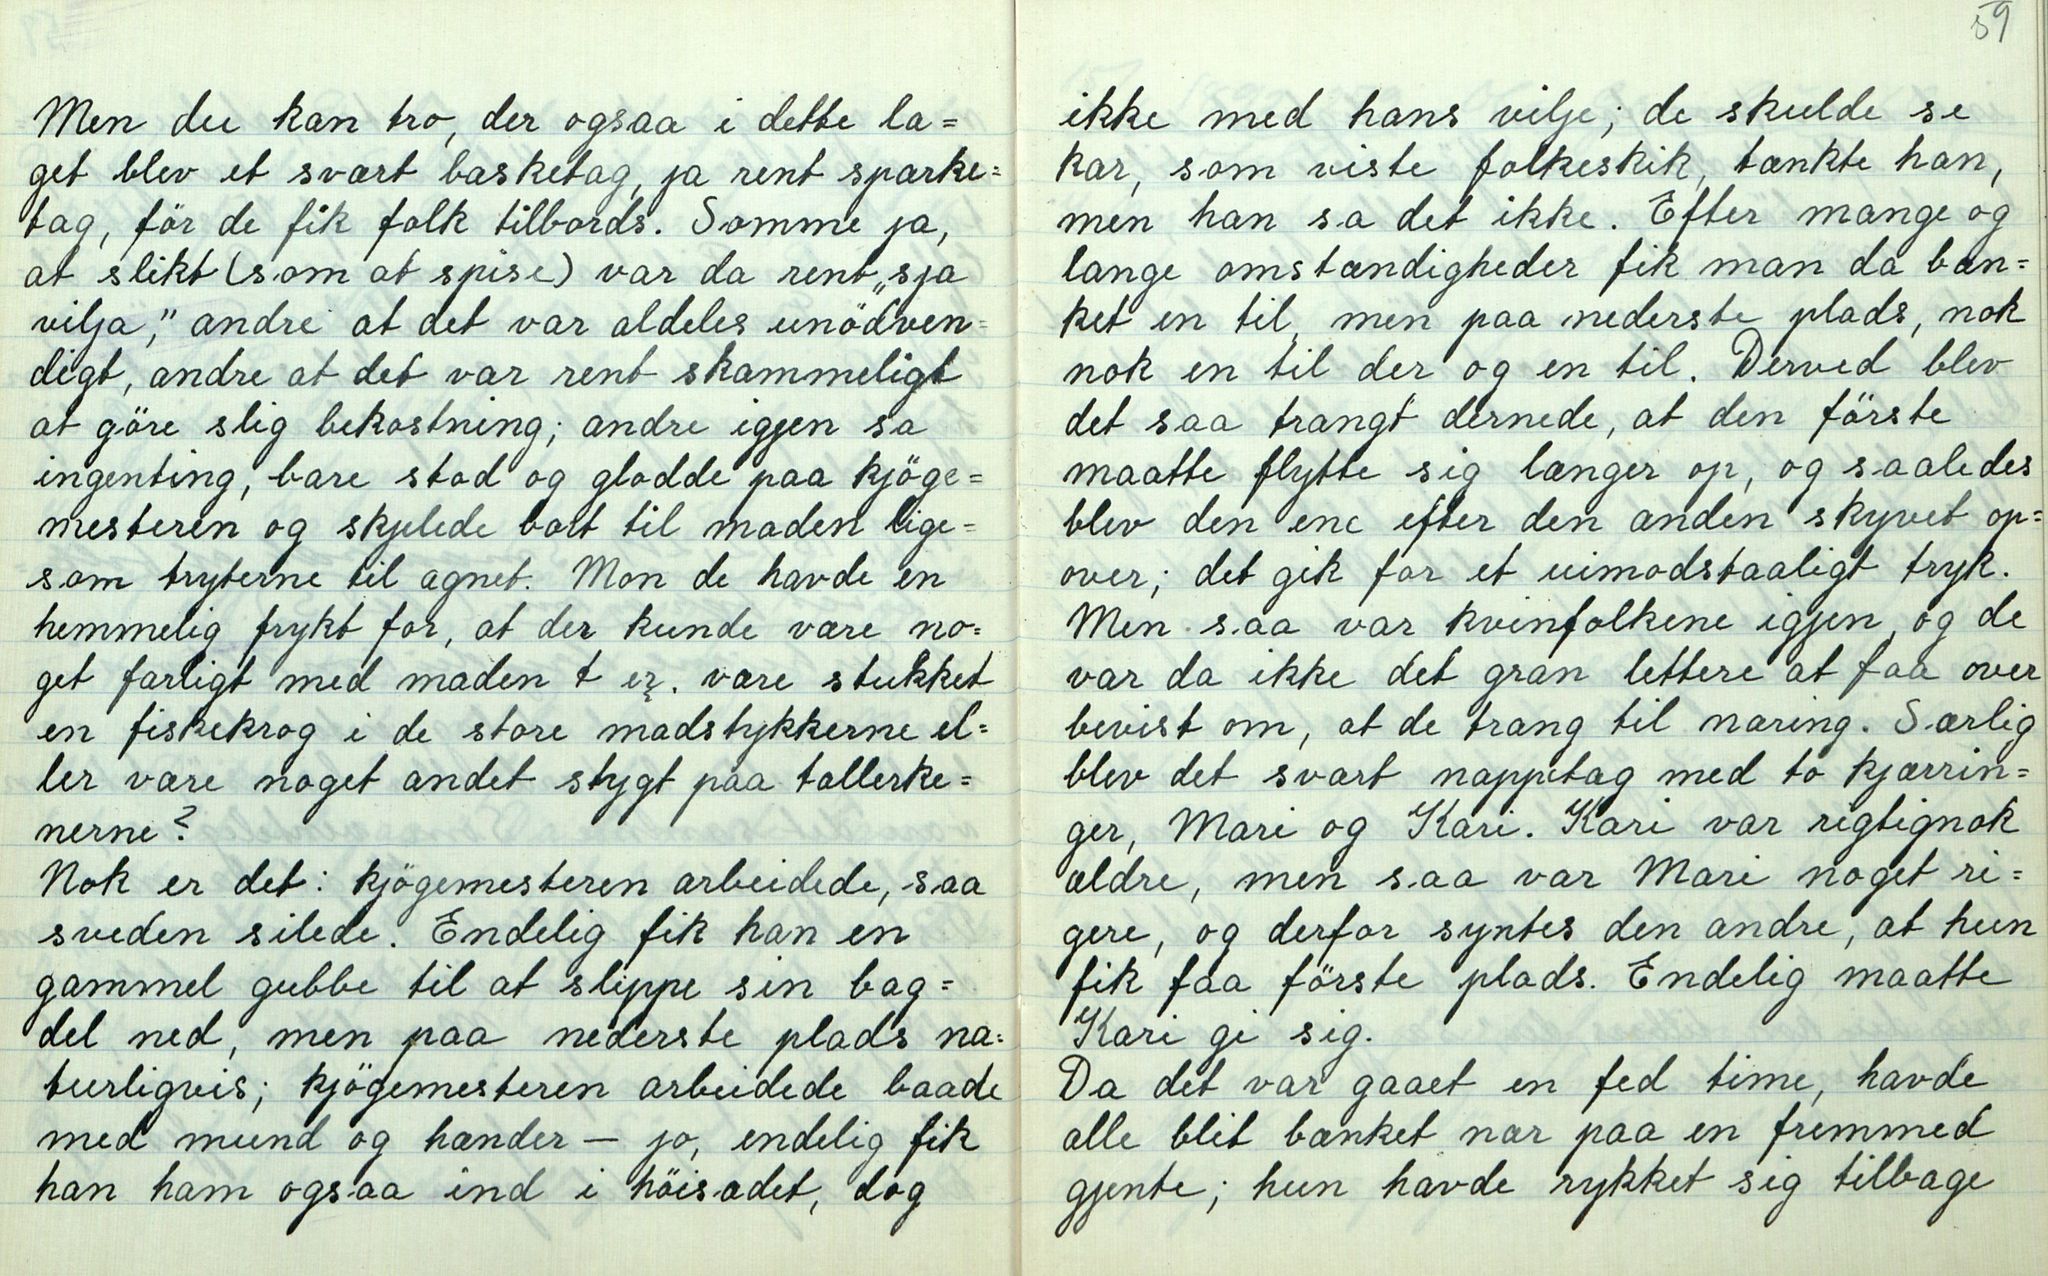 Men du kan tro, der ogsaa i dette la=
get blev et svært basketag, ja rent sparke=
tag, för de fik folk tilbords. Somme ja,
at slikt (som at spise) var da rent „sja
vilja," andre at det var aldeles unödven=
digt, andre at det var rent skammeligt
at göre slig bekostning; andre igjen sa
ingenting, bare stod og glodde paa kjöge=
mesteren og skjelede bort til maden lige=
som tryterne til agnet. Mon de havde en
hemmelig frykt for, at der kunde være no=
get farligt med maden t ex. være stukket
en fiskekrog i de store madstykkerne el=
ler være noget andet stygt paa tallerke=
nerne?
Nok er det: kjögemesteren arbeidede, saa
sveden silede. Endelig fik han en
gammel gubbe til at slippe sin bag=
del ned, men paa nederste plads na=
turligvis; kjögemesteren arbeidede baade
med mund og hænder — jo, endelig fik
han ham ogsaa ind i höisædet, dog
59
ikke med hans vilje; de skulde se
kar, som viste folkeskik, tænkte han,
men han sa det ikke. Efter mange og
lange omstændigheder fik man da bæn=
ket en til, men paa nederste plads, nok
nok en til der og en til. Derved blev
det saa trangt dernede, at den förste
maatte flytte sig længer op, og saaledes
blev den ene efter den anden skyvet op=
over; det gik for et uimodstaaligt tryk.
Men saa var kvinfolkene igjen, og de
var da ikke det gran lettere at faa over
bevist om, at de trang til næring. Særlig
blev det svært nappetag med to kjærrin=
ger, Mari og Kari. Kari var rigtignok
ældre, men saa var Mari noget ri=
gere, og derfor syntes den andre, at hun
fik faa förste plads. Endelig maatte
Kari gi sig.
Da det var gaaet en fed time, havde
alle blit bænket nær paa en fremmed
gjente; hun havde rykket sig tilbage